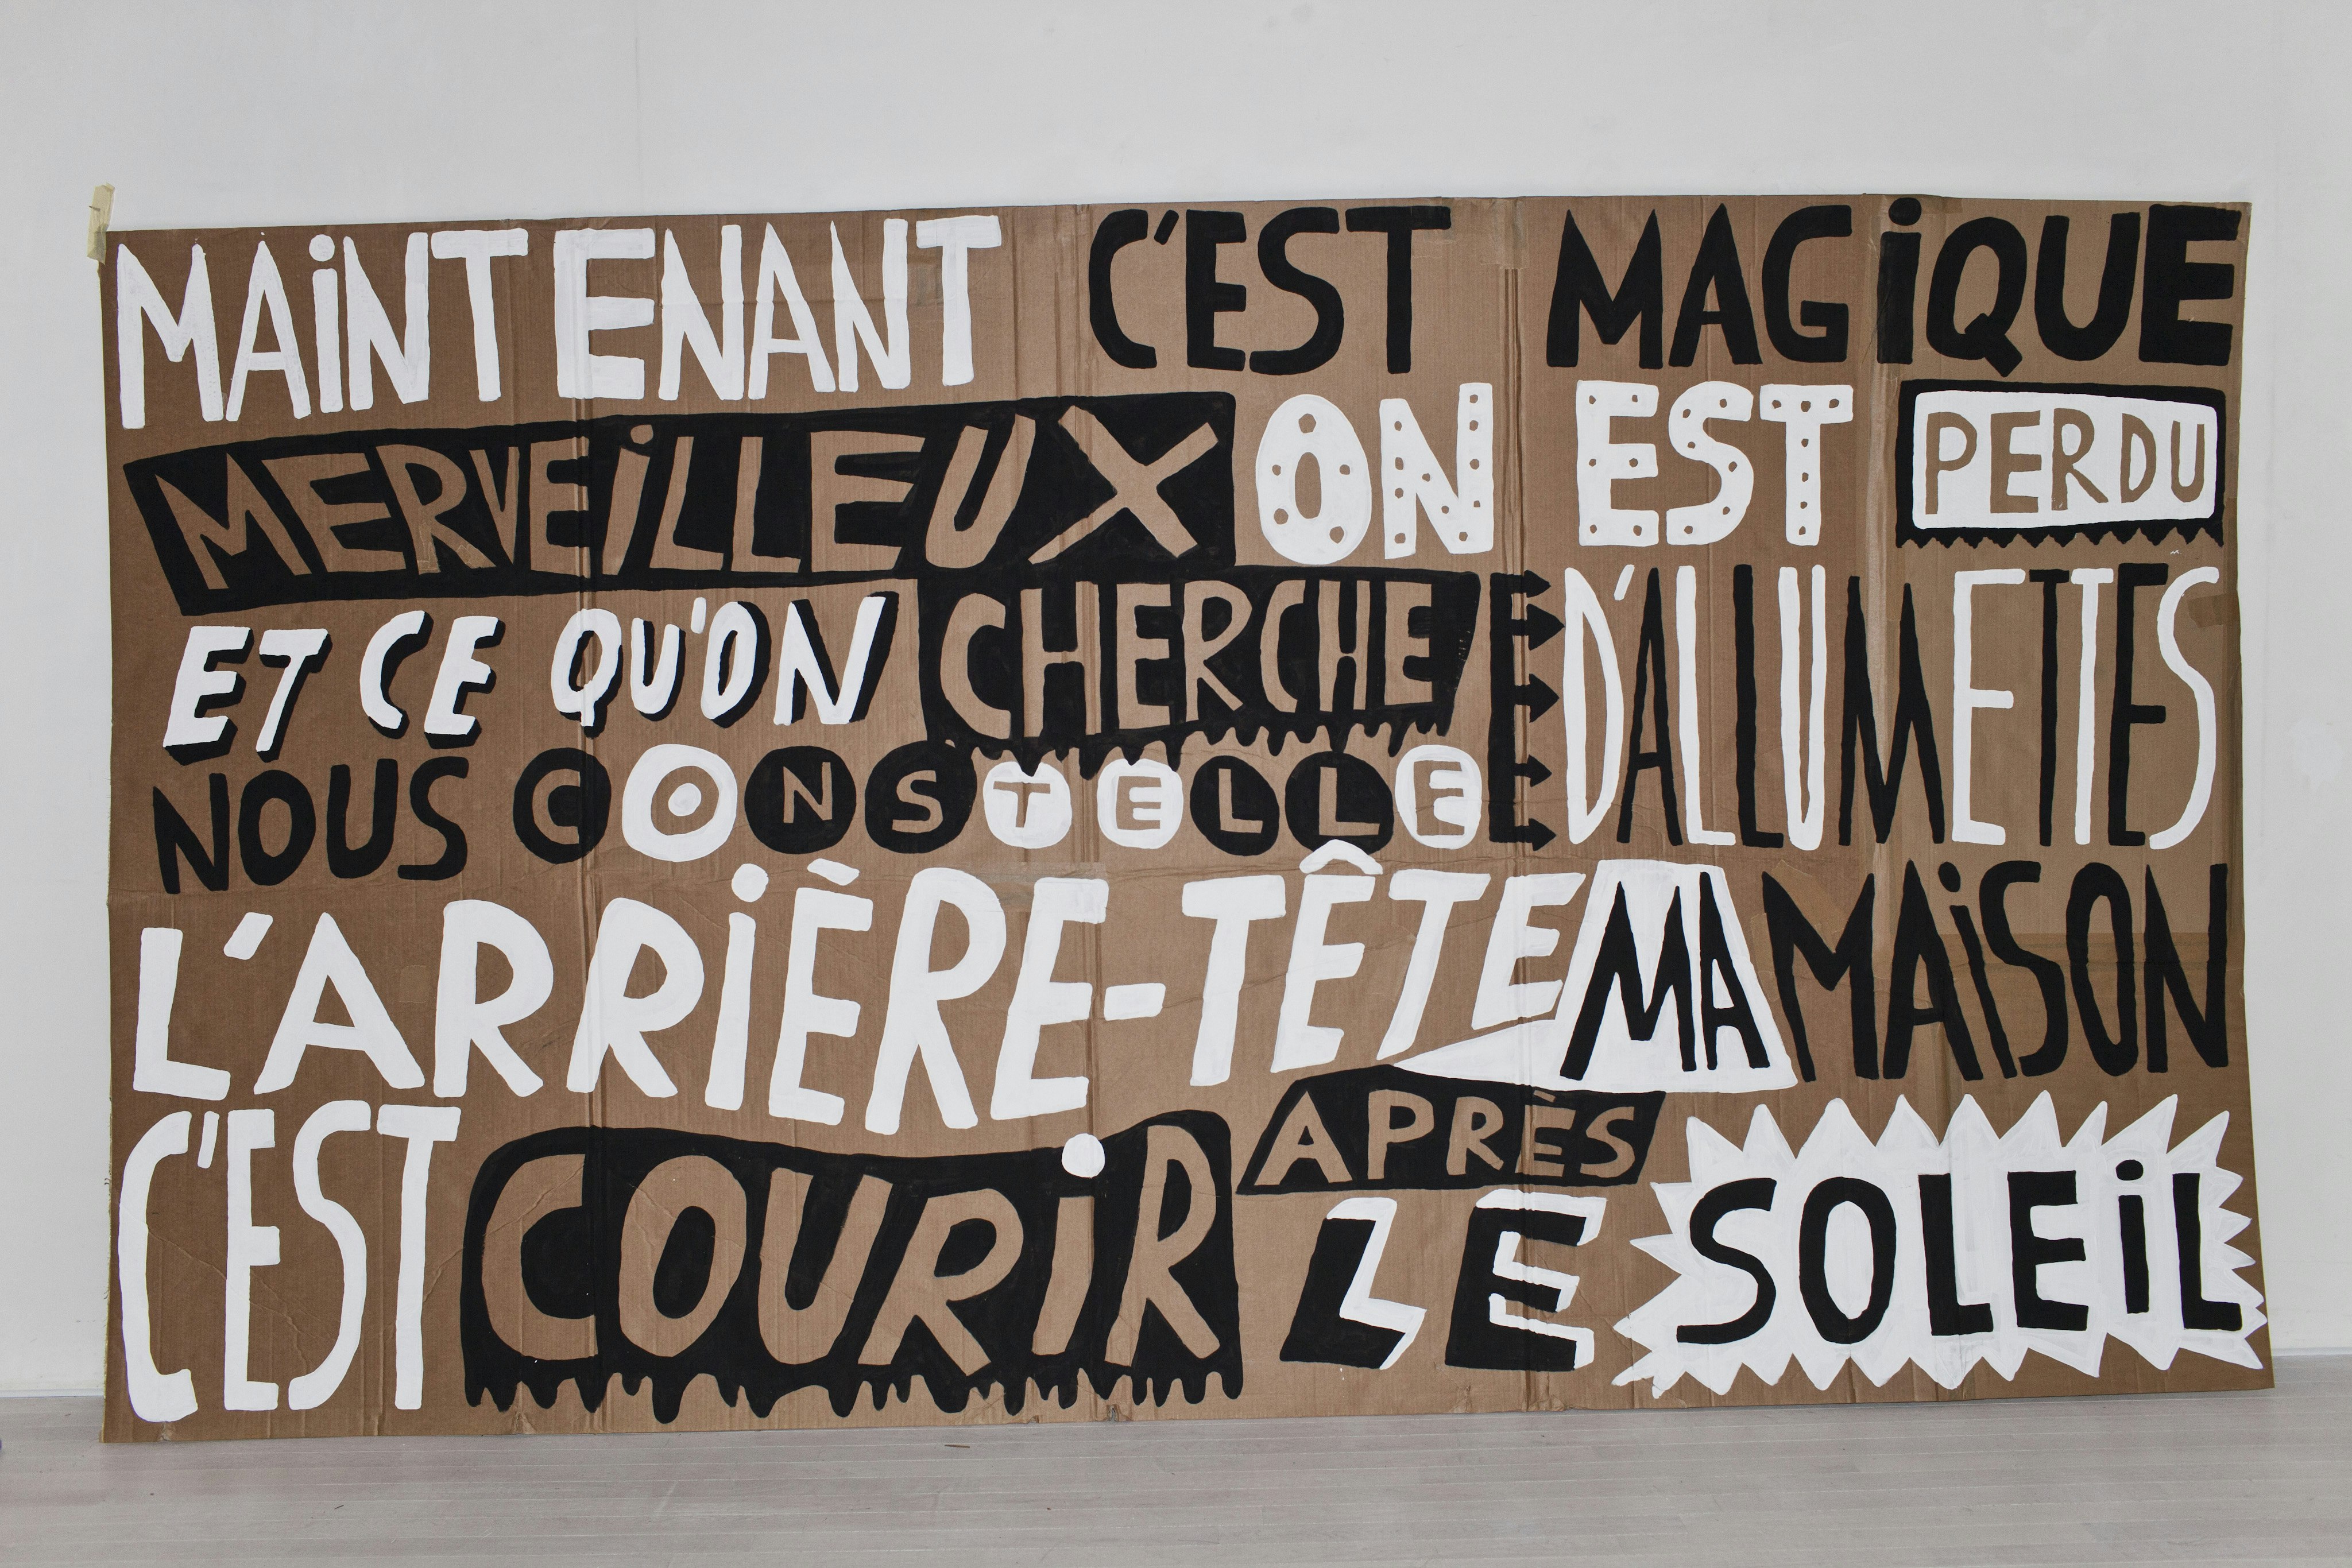 MAiNTENANT C'EST MAGiQUE
MERVEiLLEUX ON EST PERDU
ET CE QU'ON CHERCHE
NOUS CONSTELLE D'ALLUMETTES
L'ARRiÈRE-TÊTE MA MAiSON
C'EST COURiR APRÈS
LE SOLEiL